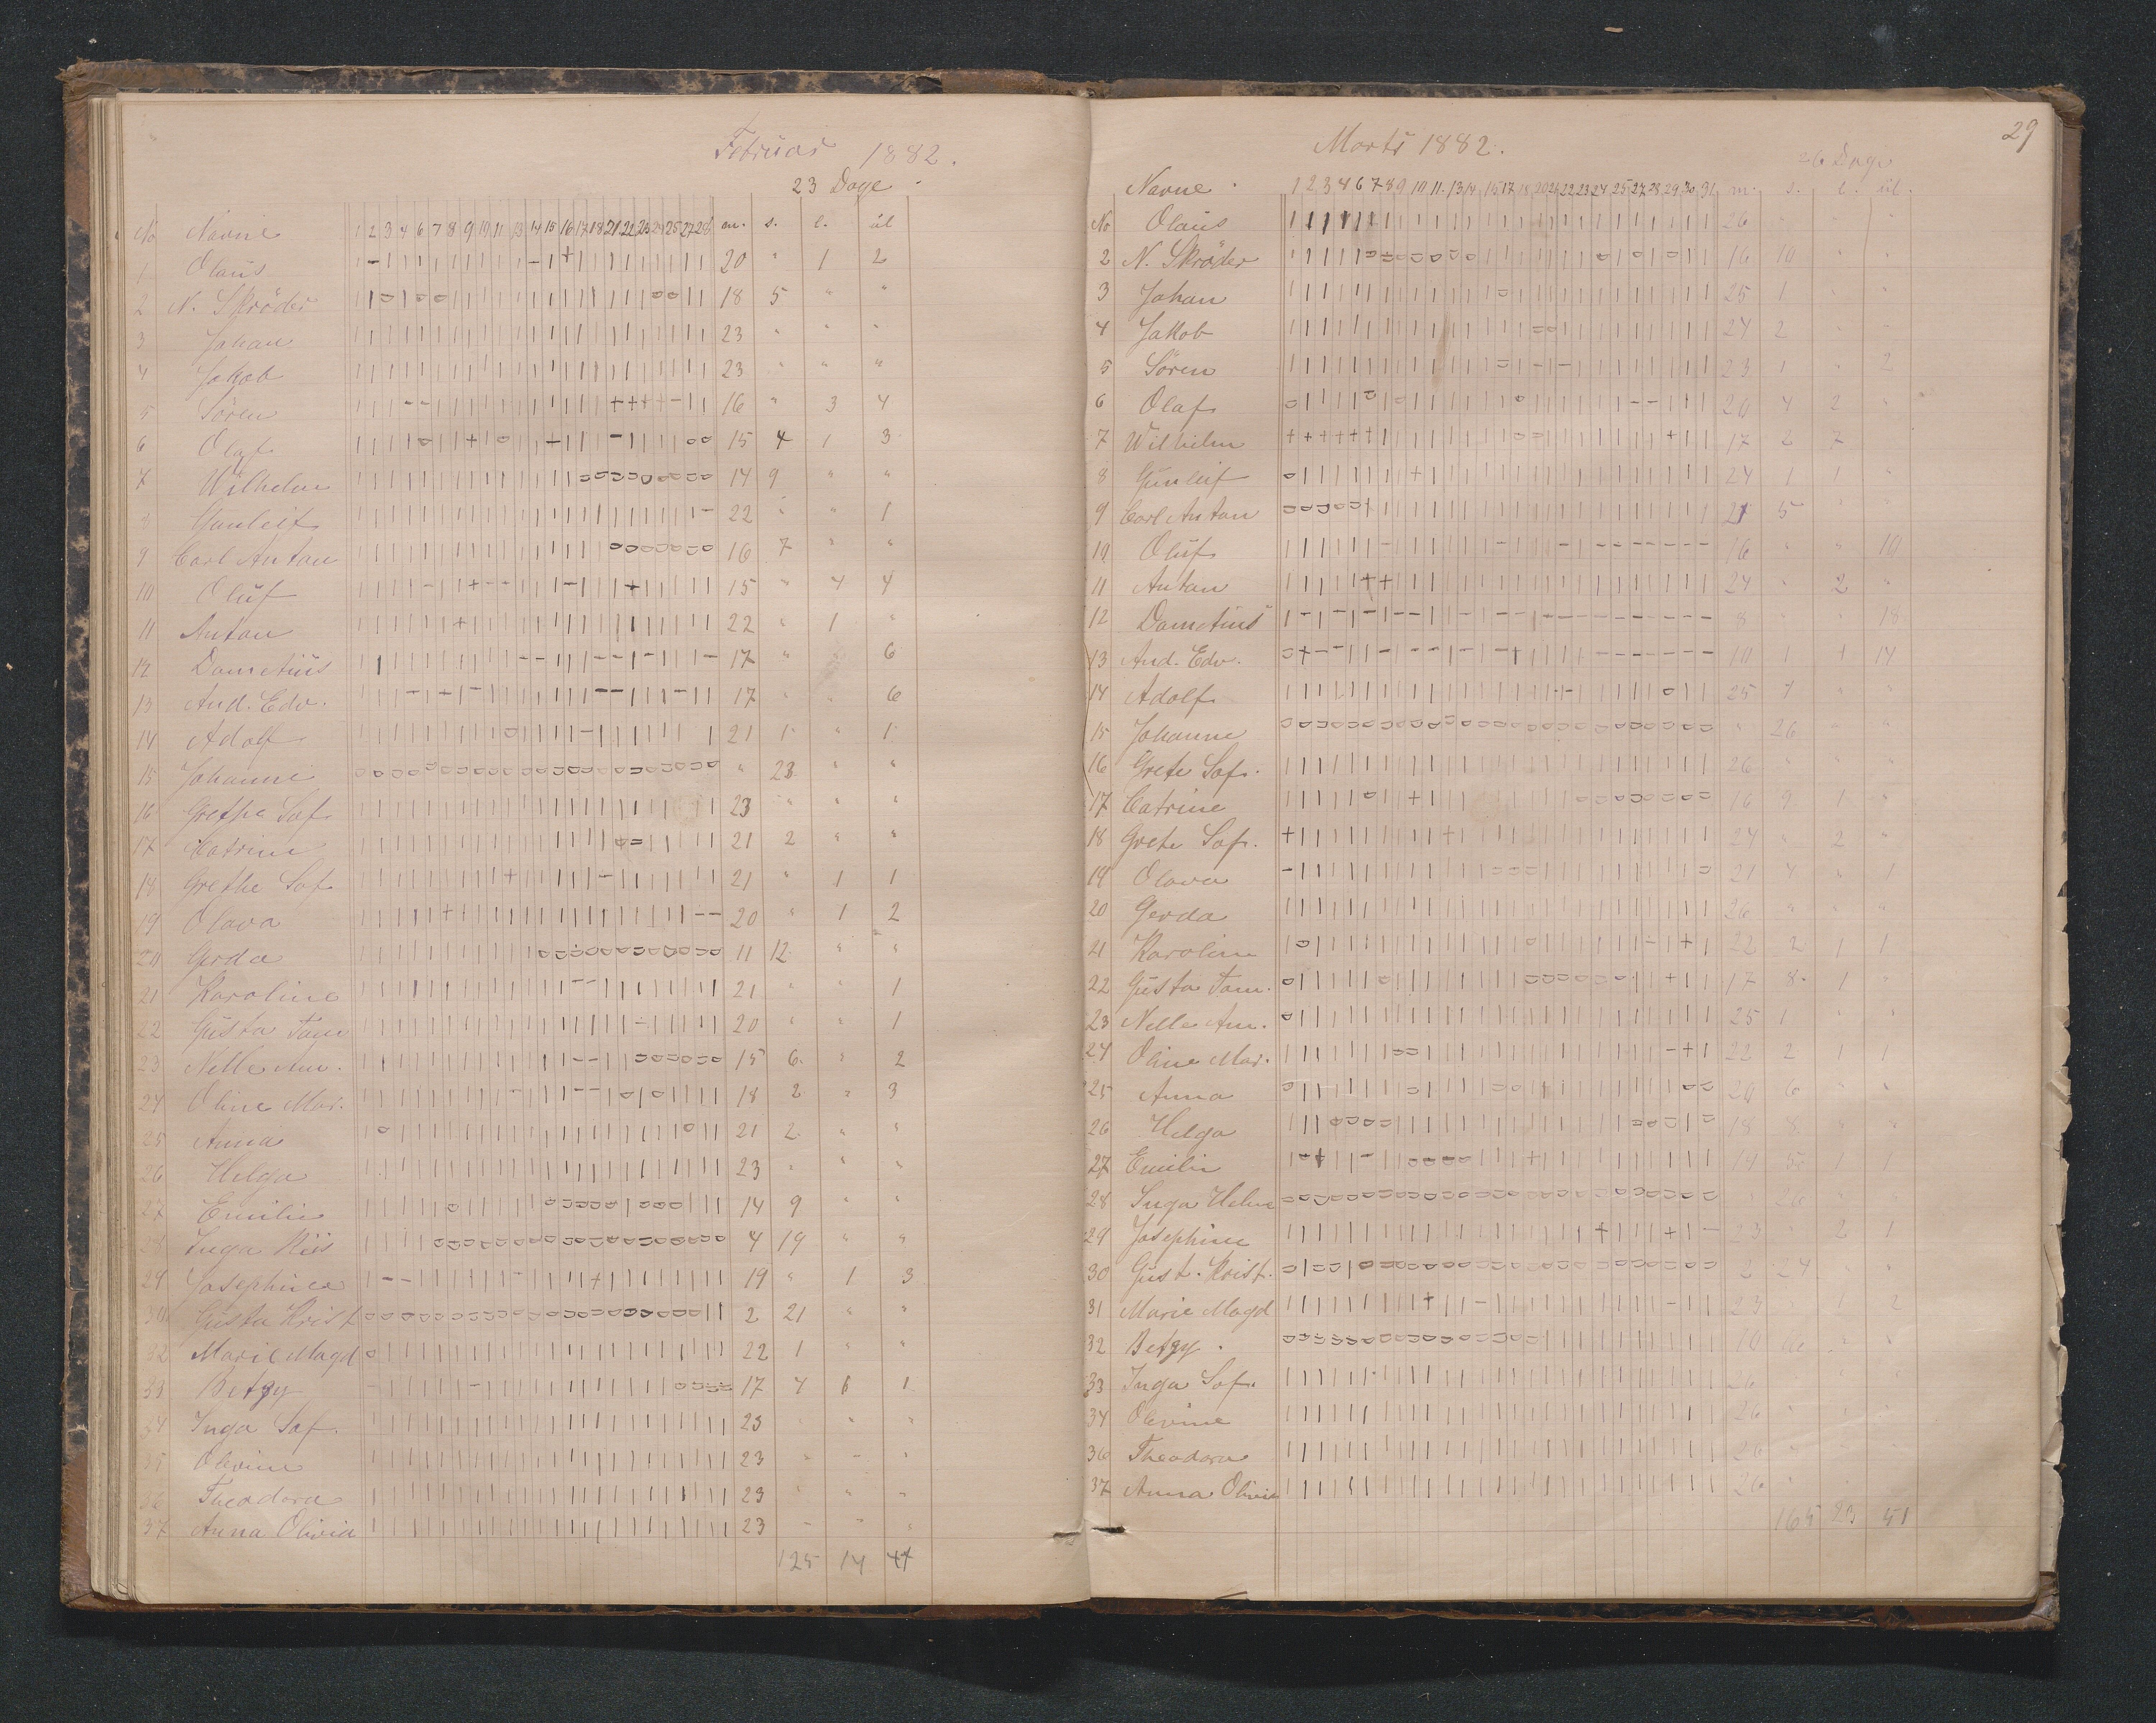 Februar 1882.
23 Dage.
No Navne 1 2 3 4 6 7 8 9 10 11 13 14 15 16 17 18 21 22 23 24 25 27 28 m. s. l. ul
1 Olaus 20 " 1 2
2 N. Skröder 18 5 " "
3 Johan 23 " " "
4 Jakob 23 " " "
5 Sören 16 " 3 4
6 Olaf 15 4 1 3
7 Wilhelm 14 9 " "
8 Gunleif 22 " " 1
9 Carl Anton 16 7 " "
10 Oluf 15 " 4 4
11 Anton 22 " 1 "
12 Dametius 17 " " 6
13 And. Edv. 17 " " 6
14 Adolf 21 1 " 1
15 Johanne " 23 " "
16 Grethe Sof. 23 " " "
17 Catrine 21 2 " "
18 Grethe Sof. 21 " 1 1
19 Olava 20 " 1 2
20 Gerda 11 12 " "
21 Karoline 21 " " 1
22 Gusta Tom 20 " " 1
23 Nelle Am. 15 6 " 2
24 Oline Mar. 18 2 " 3
25 Anna 21 2 " "
26 Helga 23 " " "
27 Emilie 14 9 " "
28 Inga Riis 4 19 " "
29 Josephine 19 " 1 3
30 Gusta Krist 2 21 " "
32 Marie Magd 22 1 " "
33 Betzy 17 4 1 1
34 Inga Sof. 23 " " "
35 Olevine 23 " " "
36 Theodora 23 " " "
37 Anna Olivia 23 " " "
125 14 44
29
Marts 1882.
26 Dage
Navne 1 2 3 4 6 7 8 9 10 11 13 14 15 17 18 20 21 22 23 24 25 27 28 29 30 31 m. s. l. ul.
No Olaus 26 " " "
2 N. Skröder 16 10 " "
3 Johan 25 1 " "
4 Jakob 24 2 "
5 Sören 23 1 " 2
6 Olaf 20 4 2 "
7 Wilhelm 17 2 7
8 Gunleif 24 1 1 "
9 Carl Anton 21 5 " "
10 Oluf 16 " " 10
11 Anton 24 " 2 "
12 Dametius 8 " " 18
13 And. Edv. 10 1 1 14
14 Adolf 25 1 " "
15 Johanne " 26 " "
16 Grete Sof. 26 " " "
17 Catrine 16 9 1 "
18 Grete Sof. 24 " 2 "
19 Olava 21 4 " 1
20 Gerda 26 " " "
21 Karoline 22 2 1 1
22 Gusta Tom. 17 8 1 "
23 Nelle Am. 25 1 " "
24 Oline Mar. 22 2 1 1
25 Anna 20 6 " "
26 Helga 18 8 " "
27 Emilie 19 5
28 Inga Helene 26 " "
29 Josephine 23 " 2 1
30 Gust. Krist. 2 24 " "
31 Marie Magd 23 1 2
32 Betzy. 10
33 Inga Sof. 26 " "
34 Olevine 26 " " "
36 Theodora 26 "
37 Anna Olivia 26 "
165 23 51